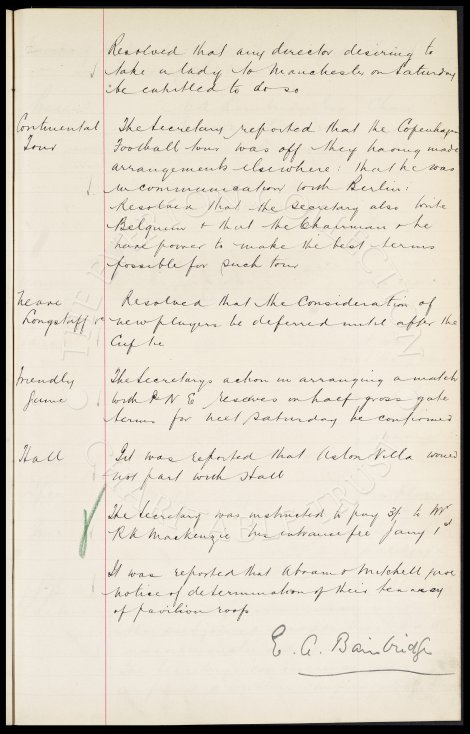 Resolved that any director desiring to
take a lady to Manchester on Saturday
be entitled to do so
Continental Tour
The Secretary reported that the Copenhagen
Football tour was off they having made
arrangements elsewhere: that he was
in communication with Berlin:
Resolved that the Secretary also write
Belgium & that the Chairman & he
have power to make the best terms
possible for such tour
Longstaff &c
Resolved that the Consideration of
new players be deferred until after the
Cup tie
Friendly Game
The Secretarys action in arranging a match
with P N E reserves on half gross gate
terms for next Saturday be confirmed
Hall
It was reported that Aston Villa would
not part with Hall
The Secretary was instructed to pay to Mr
R K Mackenzie his entrance fee Jany 1st
It was reported that Abram & Mitchell gave
notice of determination of their tenancy
of pavilion roofs
E. A. Bainbridge